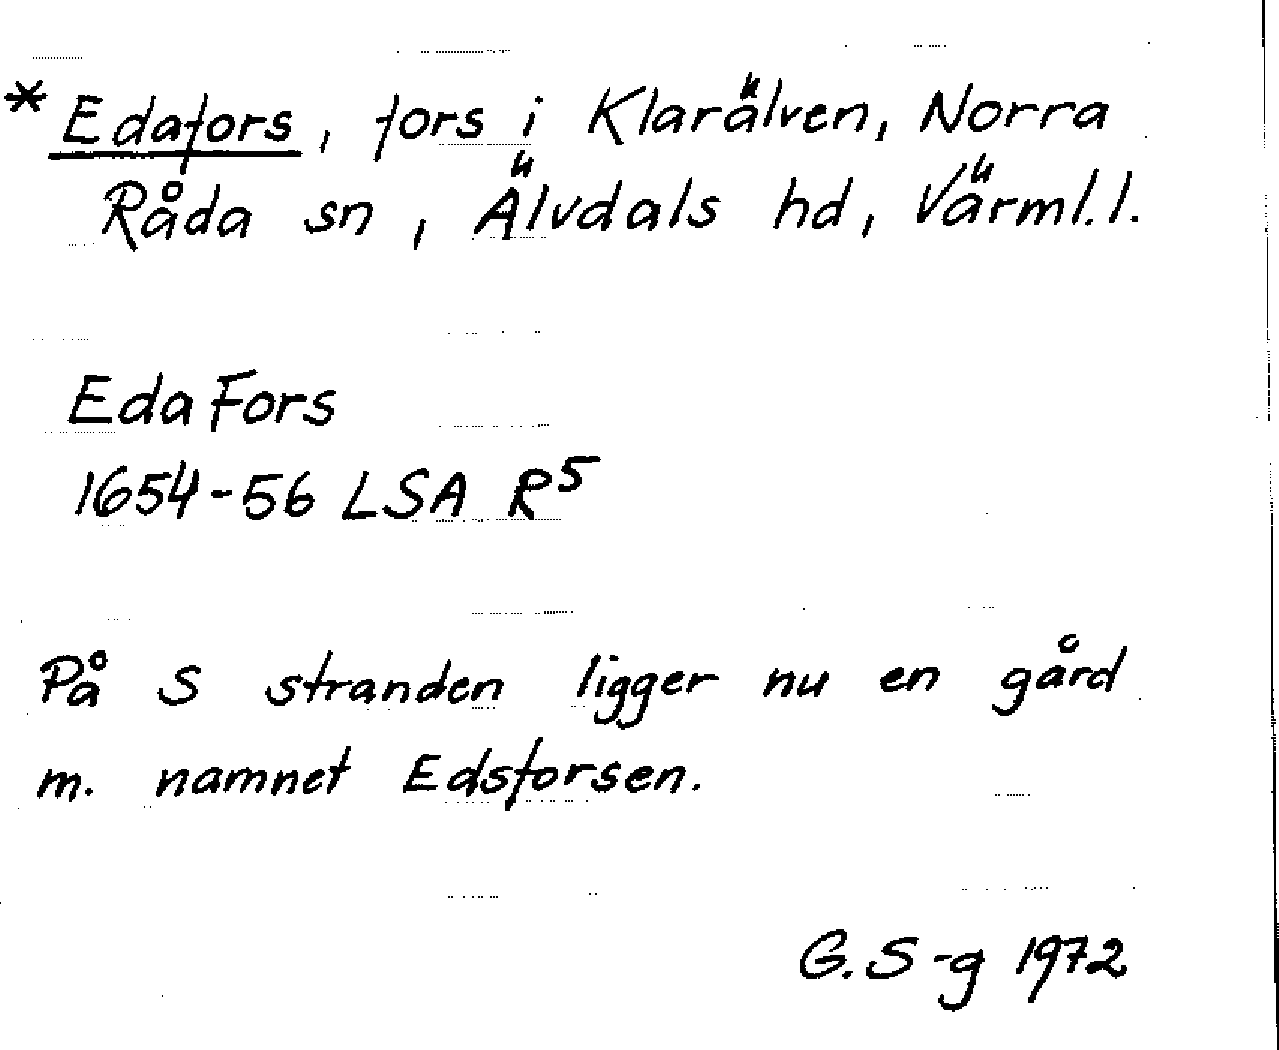 * Edafors, fors i Klarälven, Norra
Råda sn, Älvdals hd, Värml. l.
Eda Fors
1654-56 LSA R⁵
På S stranden ligger nu en gård
m. namnet Edsforsen.
G. S-g 1972